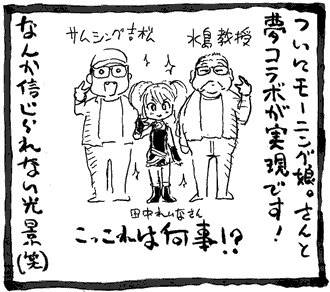 ついにモーニング娘。さんと
夢コラボが実現です!
水島教授
サムシング吉松
田中れいなさん
こっこれは何事!?
なんか信じられない光景(笑)